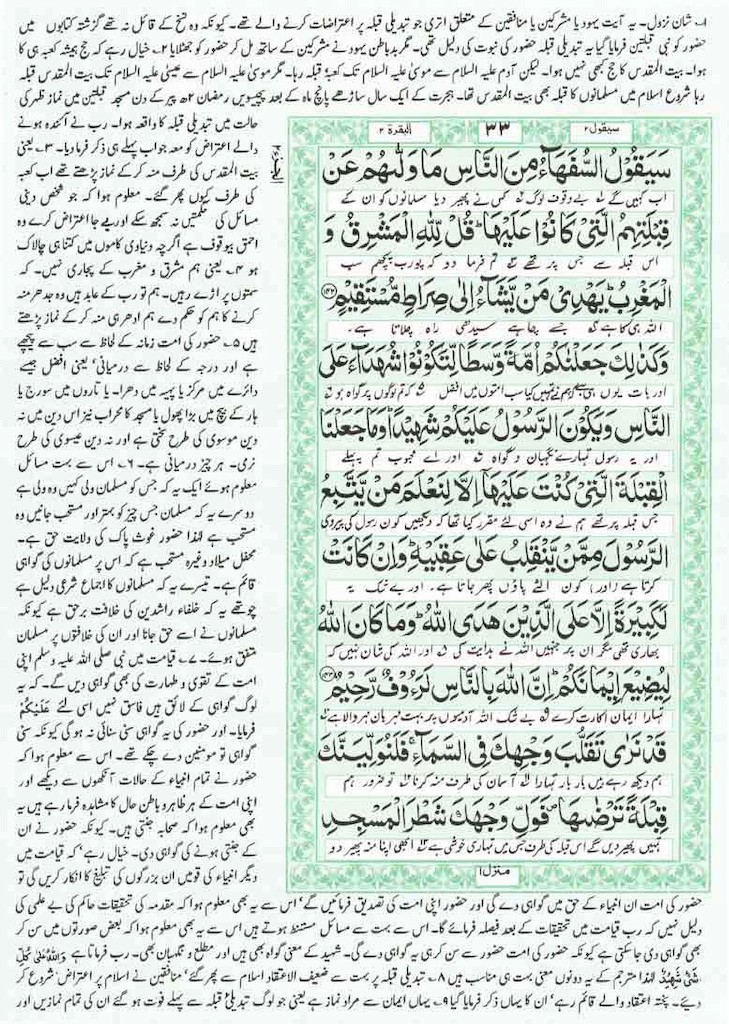 ۱۔ شان نزول۔ یہ آیت یہود یا مشرکین یا منافقین کے متعلق اتری جو تبدیلی قبلہ پر اعتراضات کرنے والے تھے۔ کیونکہ وہ نسخ کے قائل نہ تھے گزشتہ کتابوں میں
حضور کو نبی قبلتین فرمایا گیا یہ تبدیلی قبلہ حضور کی نبوت کی دلیل تھی۔ مگر بدباطن یہود نے مشرکین کے ساتھ مل کر حضور کو جھٹلایا ۲۔ خیال رہے کہ حج ہمیشہ کعبہ ہی کا
ہوا۔ بیت المقدس کا حج کبھی نہیں ہوا۔ لیکن آدم علیہ السلام سے موسیٰ علیہ السلام تک کعبہ قبلہ رہا۔ پھر موسیٰ علیہ السلام سے عیسیٰ علیہ السلام تک بیت المقدس قبلہ
رہا شروع اسلام میں مسلمانوں کا قبلہ بھی بیت المقدس تھا۔ ہجرت کے ایک سال ساڑھے پانچ ماہ کے بعد پچیسویں رمضان ۲ھ پیر کے دن مسجد قبلتین میں نماز ظہر کی
سیقول۲
۳۳
البقرة ۲
سَيَقُولُ السُّفَهَاءُ مِنَ النَّاسِ مَا وَلّٰىهُمْ عَنْ
اب کہیں گے بے وقوف لوگ کس نے پھیر دیا مسلمانوں کو ان کے
قِبْلَتِهِمُ الَّتِيْ كَانُوْا عَلَيْهَا ؕ قُلْ لِّلّٰهِ الْمَشْرِقُ وَ
اس قبلہ سے جس پر تھے تم فرما دو کہ پورب پچھم سب
الْمَغْرِبُ ؕ يَهْدِيْ مَنْ يَّشَآءُ اِلٰى صِرَاطٍ مُّسْتَقِيْمٍ ﴿۱۴۲﴾
اللہ ہی کا ہے جسے چاہے سیدھی راہ چلاتا ہے۔
وَكَذٰلِكَ جَعَلْنٰكُمْ اُمَّةً وَّسَطًا لِّتَكُوْنُوْا شُهَدَآءَ عَلَى
اور بات یوں ہی ہے کہ ہم نے تمہیں کیا سب امتوں میں افضل کہ تم لوگوں پر گواہ ہو
النَّاسِ وَيَكُوْنَ الرَّسُوْلُ عَلَيْكُمْ شَهِيْدًا ؕ وَمَا جَعَلْنَا
اور یہ رسول تمہارے نگہبان و گواہ اور اے محبوب تم پہلے
الْقِبْلَةَ الَّتِيْ كُنْتَ عَلَيْهَآ اِلَّا لِنَعْلَمَ مَنْ يَّتَّبِعُ
جس قبلہ پر تھے ہم نے وہ اسی لئے مقرر کیا تھا کہ دیکھیں کون رسول کی پیروی
الرَّسُوْلَ مِمَّنْ يَّنْقَلِبُ عَلٰى عَقِبَيْهِ ؕ وَاِنْ كَانَتْ
کرتا ہے اور کون الٹے پاؤں پھر جاتا ہے۔ اور بے شک یہ
لَكَبِيْرَةً اِلَّا عَلَى الَّذِيْنَ هَدَى اللّٰهُ ؕ وَمَا كَانَ اللّٰهُ
بھاری تھی مگر ان پر جنہیں اللہ نے ہدایت کی اور اللہ کی شان نہیں کہ
لِيُضِيْعَ اِيْمَانَكُمْ ؕ اِنَّ اللّٰهَ بِالنَّاسِ لَرَءُوْفٌ رَّحِيْمٌ ﴿۱۴۳﴾
تمہارا ایمان اکارت کرے بے شک اللہ آدمیوں پر بہت مہربان مہر والا ہے
قَدْ نَرٰى تَقَلُّبَ وَجْهِكَ فِي السَّمَآءِ ۚ فَلَنُوَلِّيَنَّكَ
ہم دیکھ رہے ہیں بار بار تمہارا آسمان کی طرف منہ کرنا تو ضرور ہم
قِبْلَةً تَرْضٰىهَا ۪ فَوَلِّ وَجْهَكَ شَطْرَ الْمَسْجِدِ
تمہیں پھیر دیں گے اس قبلہ کی طرف جس میں تمہاری خوشی ہے ابھی اپنا منہ پھیر دو
منزل۱
حالت میں تبدیلی قبلہ کا واقعہ ہوا۔ رب نے آئندہ ہونے
والے اعتراض کو معہ جواب پہلے ہی ذکر فرما دیا۔ ۳۔ یعنی
بیت المقدس کی طرف منہ کر کے نماز پڑھتے تھے اب کعبہ
کی طرف کیوں پھر گئے۔ معلوم ہوا کہ جو شخص دینی
مسائل کی حکمتیں نہ سمجھ سکے اور بے جا اعتراض کرے وہ
احمق بیوقوف ہے اگرچہ دنیاوی کاموں میں کتنا ہی چالاک
ہو ۴۔ یعنی ہم مشرق و مغرب کے پجاری نہیں۔ کہ
سمتوں پر اڑے رہیں۔ ہم تو رب کے عابد ہیں وہ جدھر منہ
کرنے کا ہم کو حکم دے ہم ادھر ہی منہ کر کے نماز پڑھتے
ہیں ۵۔ حضور کی امت زمانہ کے لحاظ سے سب سے پیچھے
ہے اور درجہ کے لحاظ سے درمیانی یعنی افضل جیسے
دائرے میں مرکز یا پہیہ میں دھرا۔ یا تاروں میں سورج یا
ہار کے بیچ میں بڑا پھول یا مسجد کا محراب نیز اس دین میں نہ
دین موسوی کی طرح سختی ہے اور نہ دین عیسوی کی طرح
نرمی۔ ہر چیز درمیانی ہے۔ ۶۔ اس سے بہت مسائل
معلوم ہوئے ایک یہ کہ جس کو مسلمان ولی کہیں وہ ولی ہے
دوسرے یہ کہ مسلمان جس چیز کو بہتر اور مستحب جانیں وہ
مستحب ہے لہٰذا حضور غوث پاک کی ولایت حق ہے۔
محفل میلاد وغیرہ مستحب ہے کہ اس پر مسلمانوں کی گواہی
قائم ہے۔ تیسرے یہ کہ مسلمانوں کا اجماع شرعی دلیل ہے
چوتھے یہ کہ خلفاء راشدین کی خلافت برحق ہے کیونکہ
مسلمانوں نے اسے حق جانا اور ان کی خلافتوں پر مسلمان
متفق ہوئے۔ ۷۔ قیامت میں نبی صلی اللہ علیہ وسلم اپنی
امت کے تقویٰ و طہارت کی بھی گواہی دیں گے۔ کہ یہ
لوگ گواہی کے لائق ہیں فاسق نہیں اسی لئے عَلَيْكُمْ
فرمایا۔ اور حضور کی یہ گواہی سنی سنائی نہ ہو گی کیونکہ سنی
گواہی تو مومنین دے چکے تھے۔ اس سے معلوم ہوا کہ
حضور نے تمام انبیاء کے حالات آنکھوں سے دیکھے اور
اپنی امت کے ہر ظاہر و باطن حال کا مشاہدہ فرما رہے ہیں یہ
بھی معلوم ہوا کہ صحابہ جنتی ہیں۔ کیونکہ حضور نے ان
کے جنتی ہونے کی گواہی دی۔ خیال رہے کہ قیامت میں
دیگر انبیاء کی قومیں ان بزرگوں کی تبلیغ کا انکار کریں گی تو
حضور کی امت ان انبیاء کے حق میں گواہی دے گی اور حضور اپنی امت کی تصدیق فرمائیں گے اس سے یہ بھی معلوم ہوا کہ مقدمہ کی تحقیقات حاکم کی بے علمی کی
دلیل نہیں کہ رب قیامت میں تحقیقات کے بعد فیصلہ فرمائے گا۔ اس سے بہت سے مسائل مستنبط ہوتے ہیں اس سے یہ بھی معلوم ہوا کہ بعض صورتوں میں سن کر
بھی گواہی دی جا سکتی ہے کیونکہ حضور کی امت حضور سے سن کر ہی یہ گواہی دے گی۔ شہید کے معنی گواہ بھی ہیں اور مطلع و نگہبان بھی۔ رب فرماتا ہے وَاللّٰهُ عَلٰى كُلِّ
شَيْءٍ شَهِيْدٌ لہٰذا مترجم کے یہ دونوں معنی بہت ہی مناسب ہیں ۸۔ تبدیلی قبلہ پر بہت سے ضعیف الاعتقاد اسلام سے پھر گئے منافقین نے اسلام پر اعتراض شروع کر
دیئے۔ پختہ اعتقاد والے قائم رہے ان کا یہاں ذکر فرمایا گیا ۹۔ یہاں ایمان سے مراد نماز ہے یعنی جو لوگ تبدیلی قبلہ سے پہلے فوت ہو گئے ان کی تمام نمازیں اور